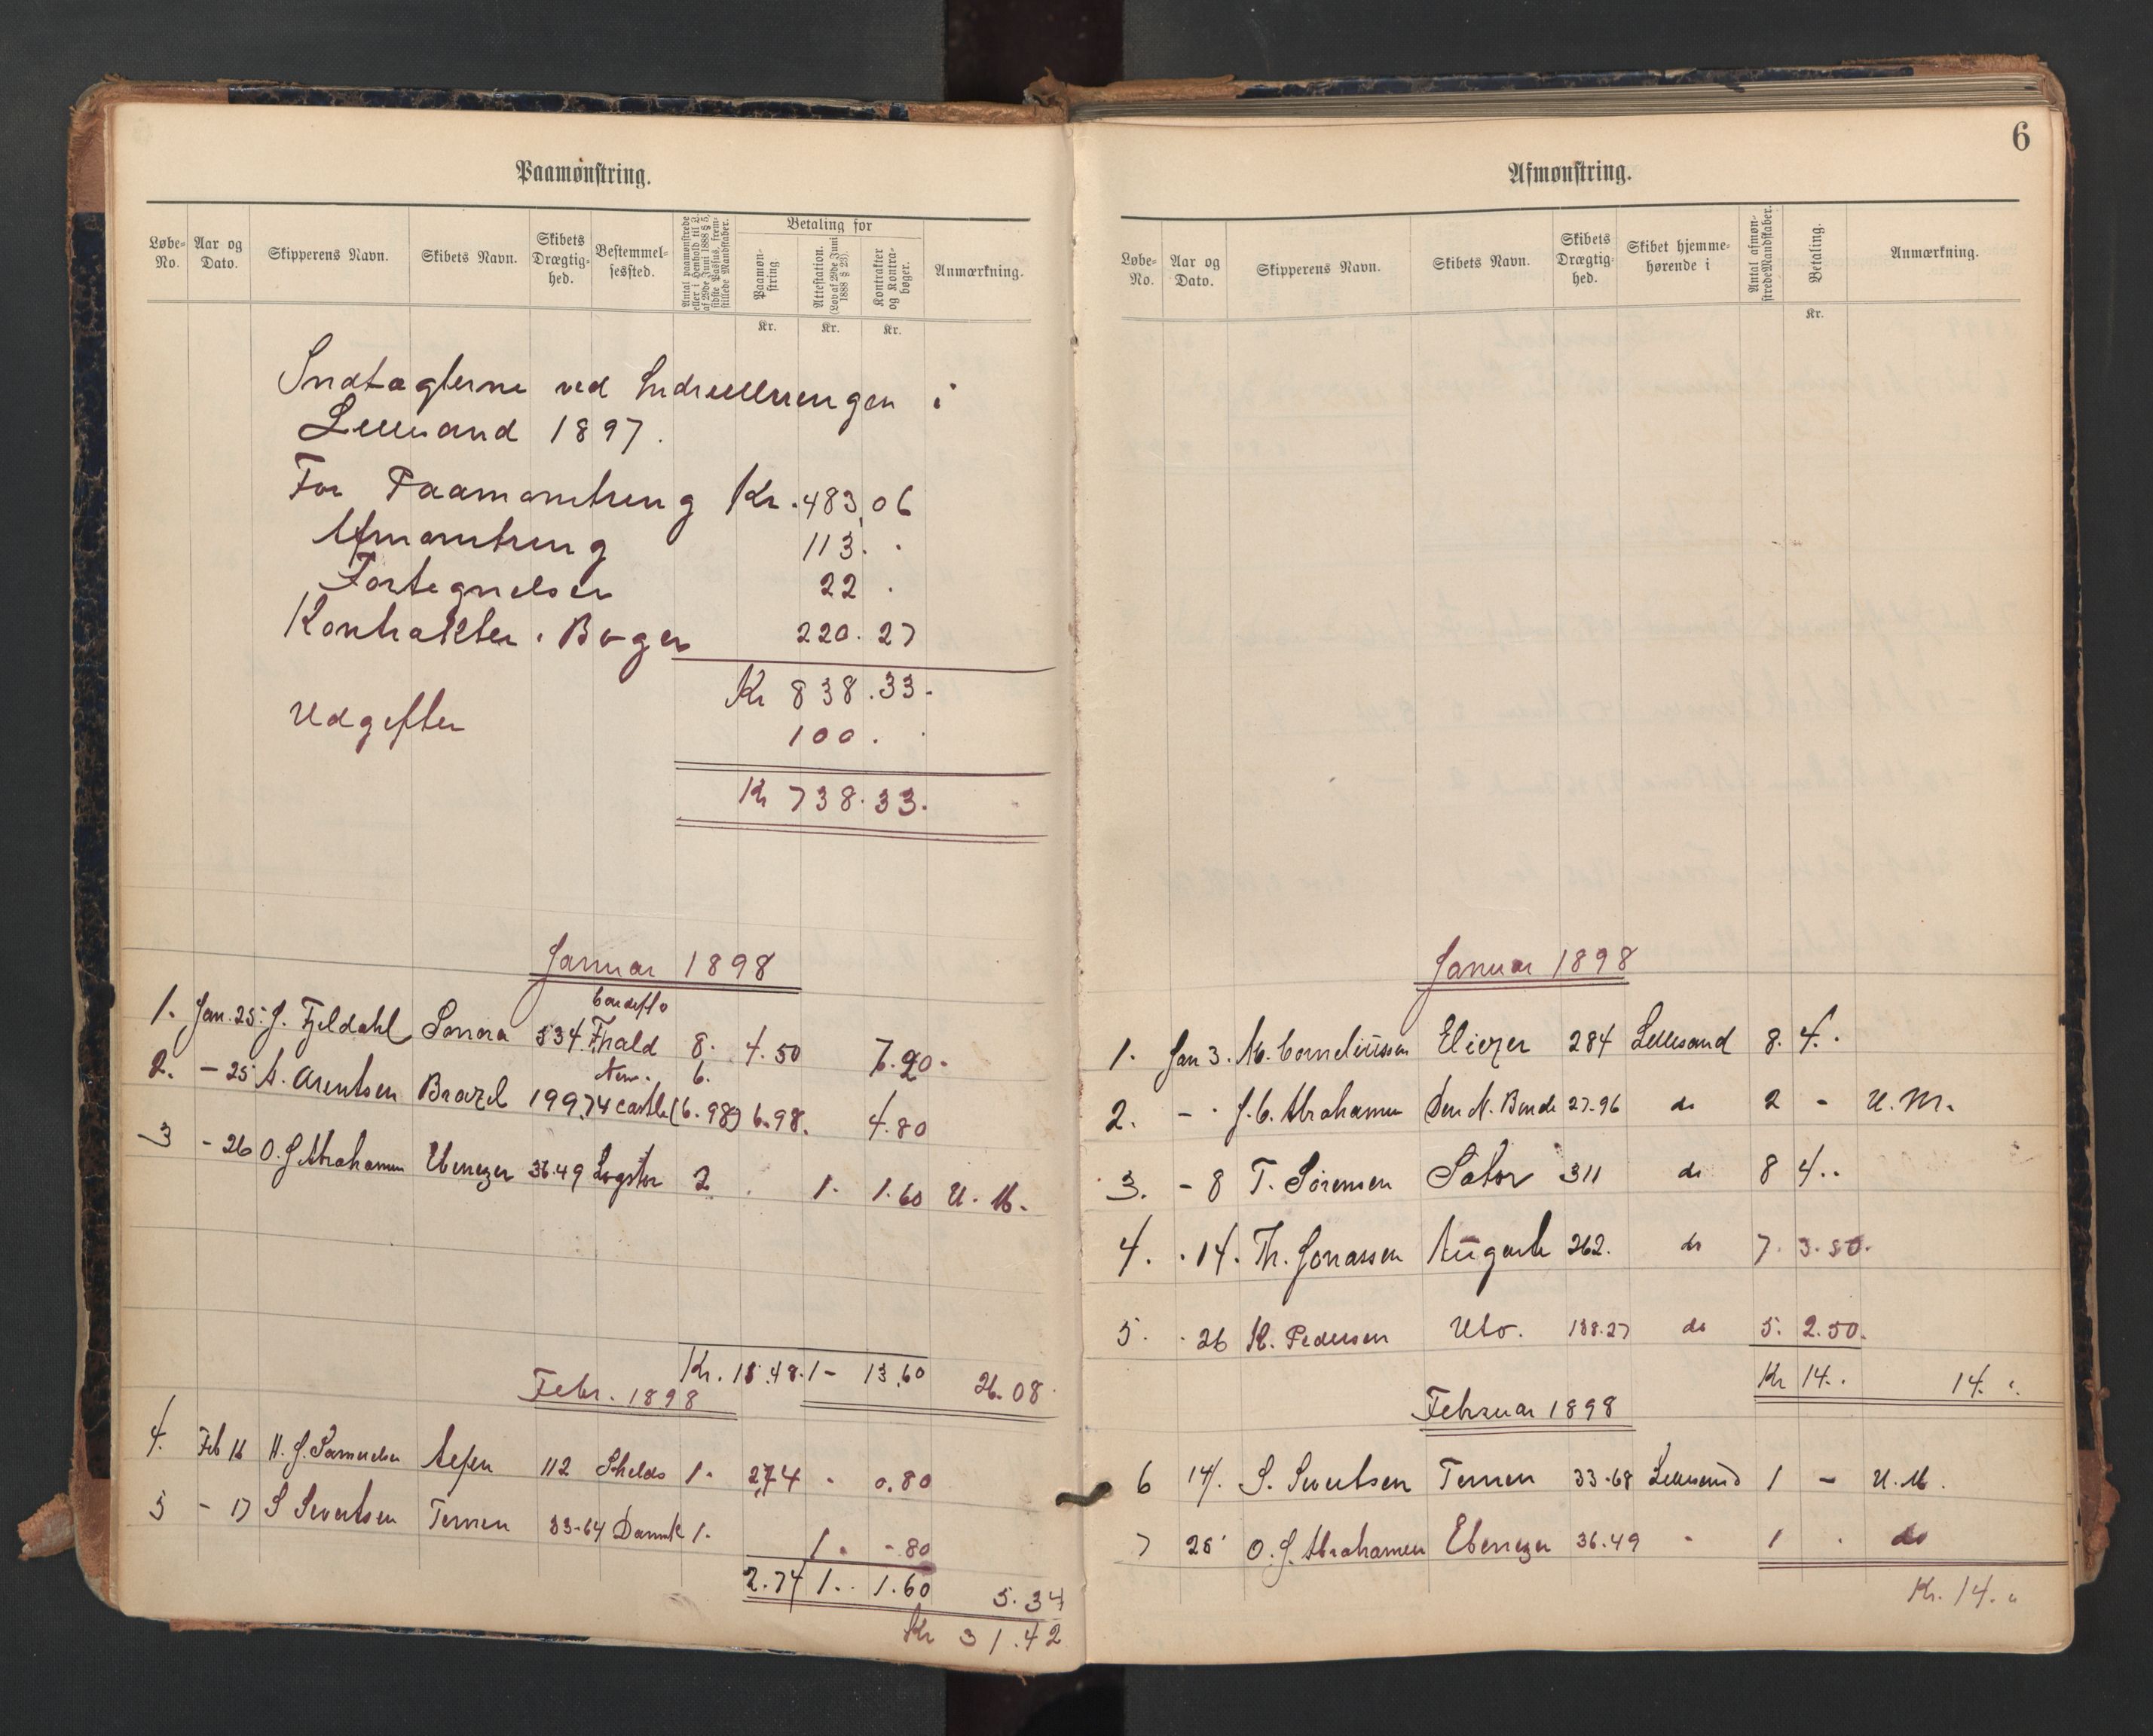 Paamønstring.
Løbe-No.
Aar og Dato.
Skipperens Navn.
Skibets Navn.
Skibets Drægtig-hed.
Bestemmel-sessted.
Antal paamønstrede eller i Henhold til L. af 29de Juni 1888 § 5, sidste Passus, frem-stillede Mandskaber.
Betaling for
Paamøn-string
Attestation. (Lov af 29de Juni 1888 § 23).
Kontrakter og Kontra-bøger.
Anmærkning.
Kr. Kr. Kr.
Indtægterne ved Indrulleringen i
Lillesand 1897.
For Paamønstring Kr. 483,06
Afmønstring 113. .
Fortegnelser 22 .
Kontrakter. Bøger 220. 27
Kr 838.33.
Udgifter 100. .
Kr 738.33.
Januar 1898
1. Jan. 25. J. Fjeldahl Sonora 534. 8. 4.50 7.20.
2. - 25 A. Arentsen Brazil 199.74 New. castle 6. (6.98) 6.98. 4.80
3 - 26 O. J. Abrahamsen Ebenezer 36.49 Løgstør 2 . 1. 1.60 U. M.
Kr. 11.48. 1 - 13.60 26.08
Febr. 1898
4. Feb 16 H. J. Samuelsen 112 Shelds 1. 2,74 - 0.80
5 - 17 S Sivertsen Ternen 33-64 Danmk 1. 1. - 80
2.74 1.. 1.60 5.34
Kr 31.42
6
Afmønstring.
Løbe-No.
Aar og Dato.
Skipperens Navn.
Skibets Navn.
Skibets Drægtig-hed.
Skibet hjemme-hørende i
Antal afmøn-strede Mandskaber.
Betaling.
Anmærkning.
Kr.
Januar 1898
1. Jan 3. M. Corneliussen Eliezer 284 Lillesand 8. 4. .
2. - . J. C. Abrahamsen Den N. Bonde 27.96 do 2 - U. M.
3. - 8 T. Sørensen Sator 311 do 8 4..
4. . 14. Th. Jonassen August 262. do 7. 3.50.
5. . 26 K. Pedersen Uto. 138.27 do 5. 2.50.
Kr 14. . 14. .
Februar 1898
6 14/. S. Sivertsen Ternen 33-68 Lillesand 1 - U. M.
7 25 O. J. Abrahamsen Ebenezer 36.49 " 1 . do
Kr. 14. "